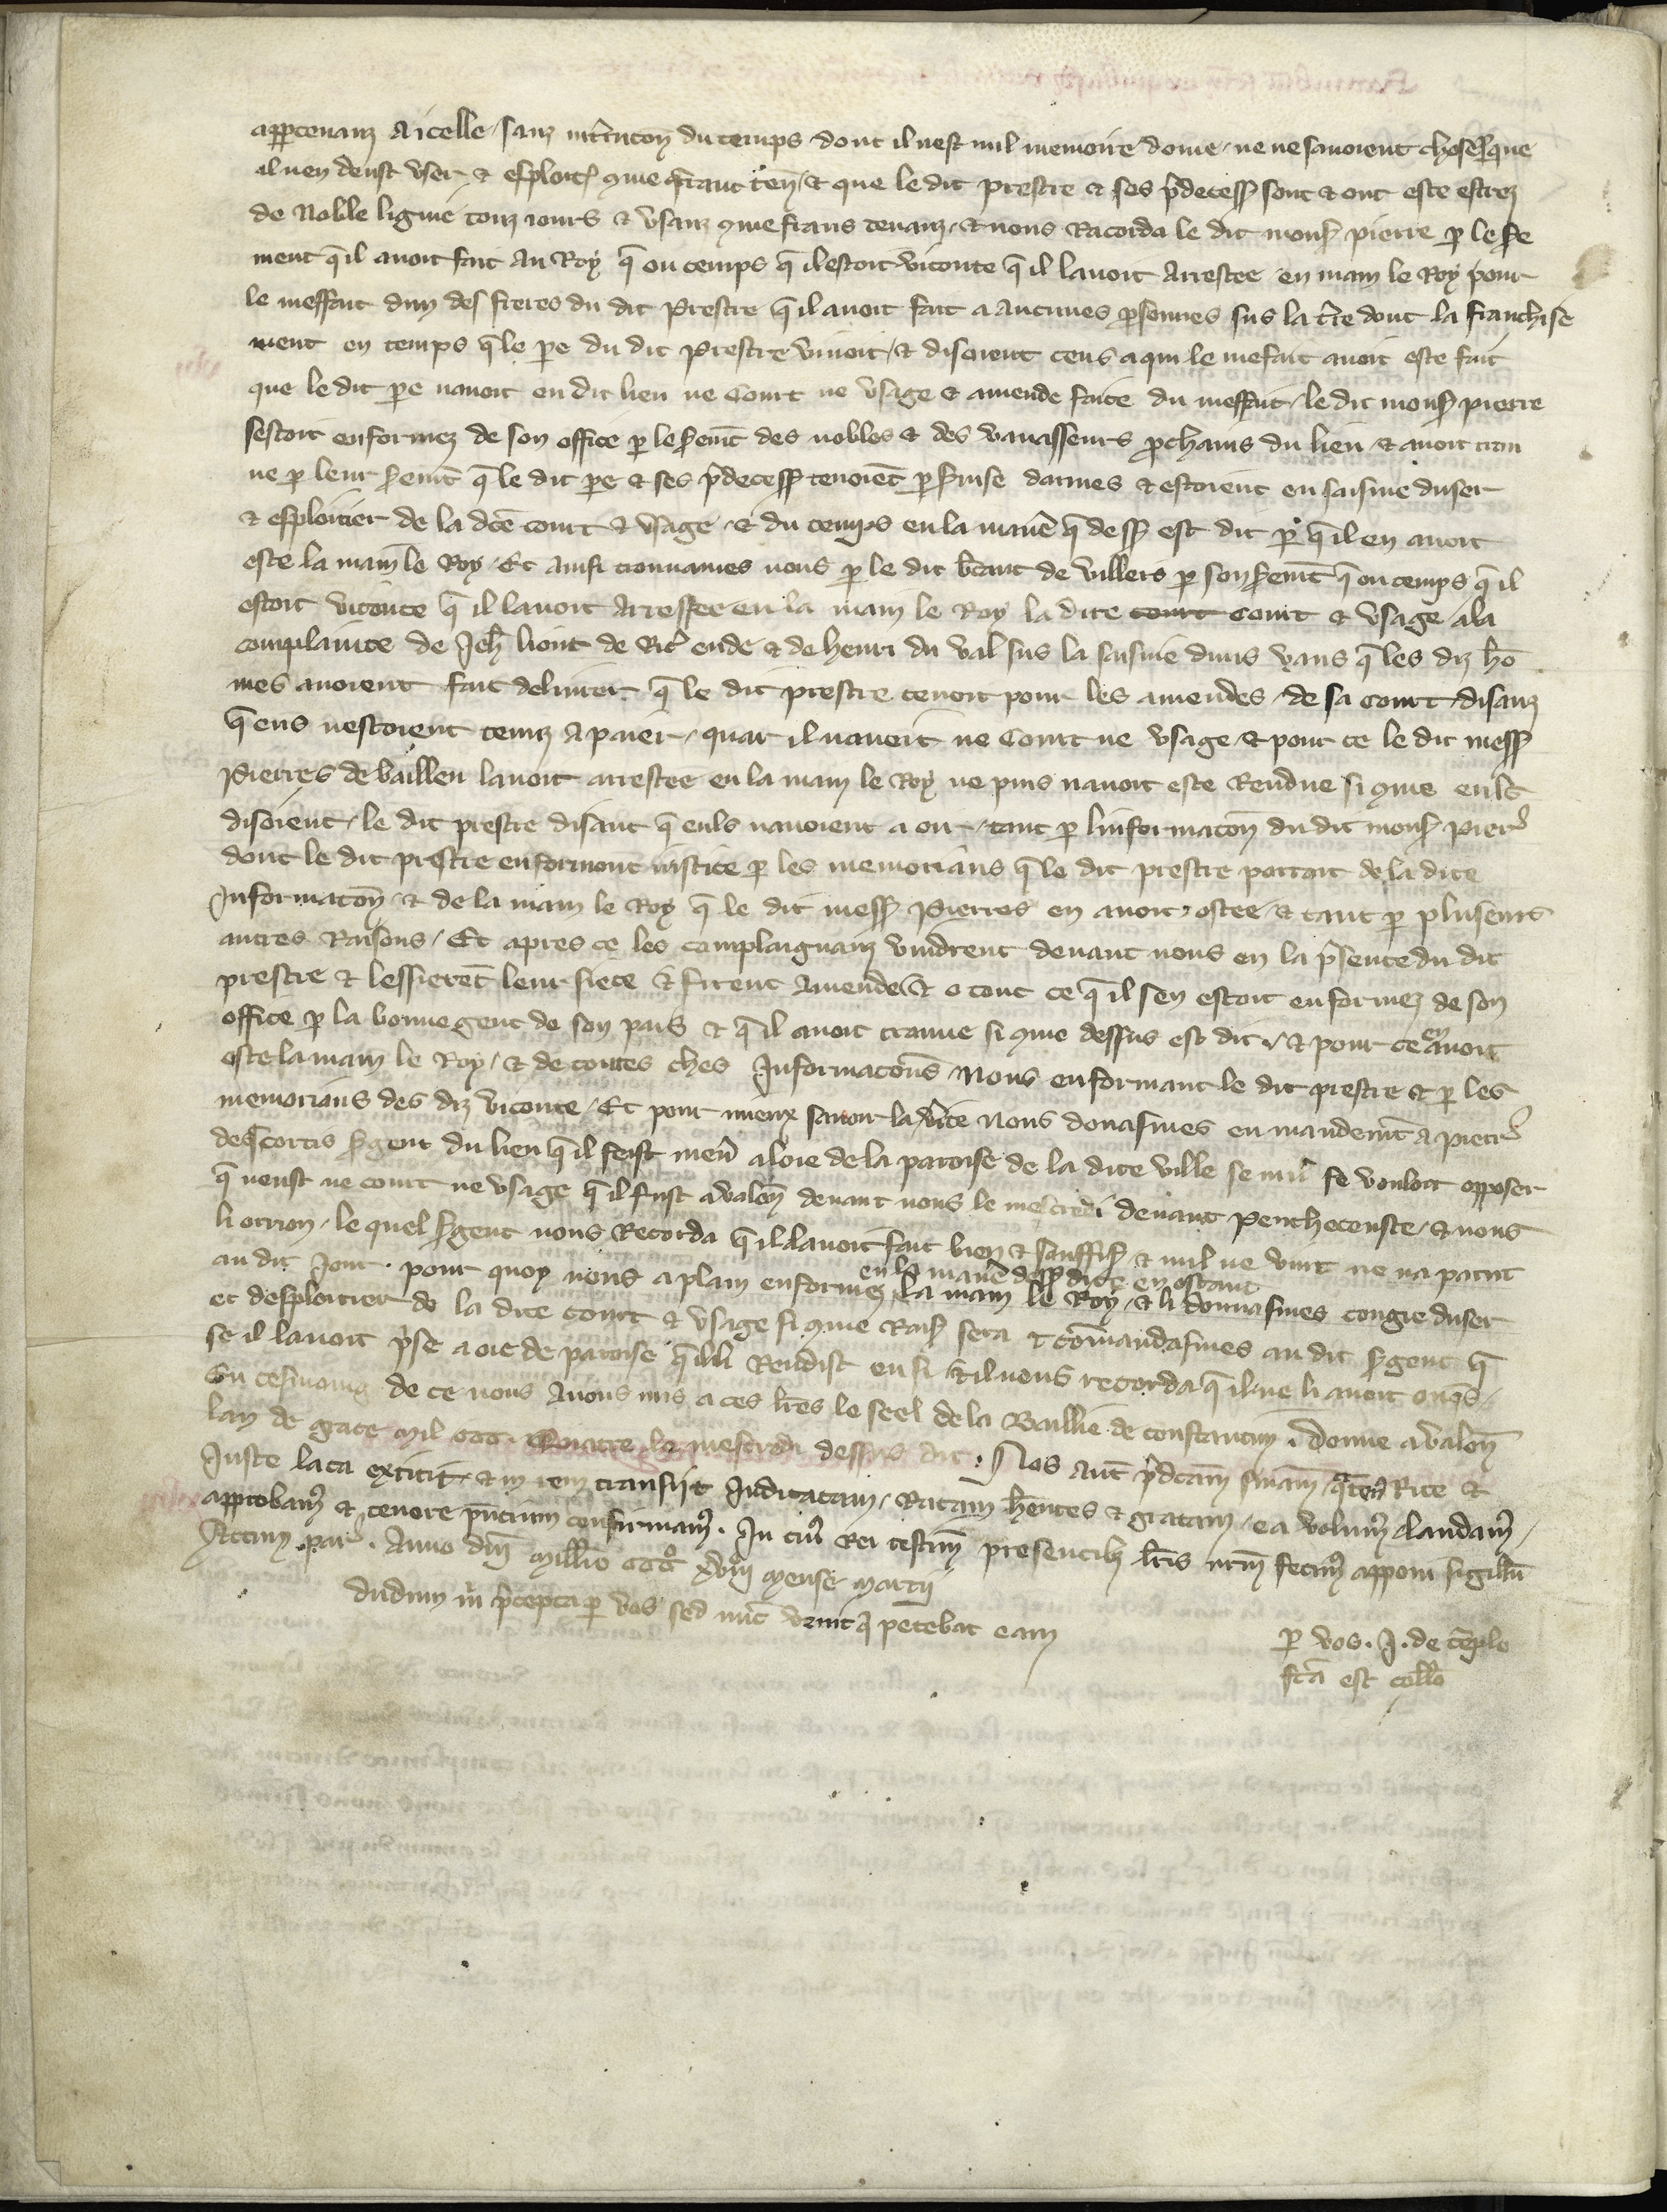 appartenanz a icelle sanz int̾rupcon̄ du temps dont il nest nul memoire dome ne ne savoient chose que
il nen deust user et esploit̾ cōme frant ten̄ et que le dit prestre et ses p̄decess̾ sont et ont este estrez
de noble lignie touz iours et usanz cōme frans tenanz et nous Racorda le dit mons̾ pierre p̱ le s̾e
ment q̄ il avoit fait au Roy q̄ ou temps q̄ il estoit viconte q̄ il lavoit Arrestee en main le Roy pour
le meffait dun des freres du dit Prestre q̄ il avoit fait a aucunes p̱sonnes sus la t̾re dont la franchise
ment en temps q̄ le pe̱ du dit Prestre vivoit et disoient ceus a qui le mefait avoit este fait
que le dit pe̱ navoit en dit lieu ne Court ne usage et amende faite du meffait le dit mons̾ pierre
sestoit enformez de son office p̱ le s̾em̄t des nobles et des vavasseurs p̱chains du lieu et avoit trou
ve p̱ leur s̾em̄t q̄ le dit pe̱ et ses p̄decess̾ tenoiēt p̱ s̾vise darmes et estoient en saisine duser
et esploitier de la dc̄e court et usage et du temps en la maniē q̄ dess̾ est dit p̱ q̄ il en avoit
oste la main le Roy Et ainsi trouvames nous p̱ le dit b̾tant de villers p̱ son s̾em̄t q̄ ou temps q̄ il
estoit viconte q̄ il lavoit Arrestee en la main le Roy la dite court Court et usage a la
complainte de Jeh̄ liout de Ric̾ ende et de henri du val sus la saisine duns vans q̄ les diz hō
mes avoient fait delivrer q̄ le dit prestre tenoit pour les amendes de sa Court disanz
q̄ eus nestoient tenuz a paier quar il navoit ne Court ne usage et pour ce le dit mess̾
Pierres de bailleu lavoit arrestee en la main le Roy ne puis navoit este Rendue si cōme eulz
disoient le dit prestre disant q̄ euls navoient a oir tant p̱ linformacon̄ du dit mons̾ Pierr̾
dont le dit prestre enformout iustice p̱ les memorians q̄ le dit prestre portoit de la dite
Informacon̄ et de la main le Roy q̄ le dit mess̾ Pierres en avoit ostee et tant p̱ pluseurs
autres Raisons Et apres ce les complaignanz vindrent devant nous en la p̄sence du dit
prestre et lessierēt leur siete et firent Amende et o tout ce q̄ il sen estoit enformez de son
office p̱ la bonne gent de son pais et q̄ il avoit trauve si cōme dessus est dit et pour ce en avoit
oste la main le Roy et de toutes ches Informacōns Nous enformant le dit prestre et p̱ les
memorians des diz viconte Et pour mieux savoir la v̾ite Nous donasmes en mandem̄t a pierr̾
descortis s̾gent du lieu q̄ il feist men̄ a loie de la paroise de la dite ville se nul se vouloit opposer
q̄ neust ne court ne usage q̄ il fust a valon̄ devant nous le mescredi devant Penthecouste et nous
li orrion le quel s̾gent nous Recorda q̄ il lavoit fait bien et souffis̾ et nul ne vint ne na parut
au dit Jour pour quoy nous a plain enformez en la maniē dess̾ dite en ostant la main le Roy et li donnasmes congie duser
et desploitier de la dite court et usage si cōme Rais̾ sera et cōmandasmes au dit s̾gent q̄
se il lavoit p̄se a oie de paroise q̄ il li Rendist en si et il nous recorda q̄ il ne li avoit onqs
En tesmoing de ce nous Avons mis a ces lr̄es le seel de la Baillie de constantin Donne a valon̄
lan de grace mil ccc Quatre le mescredi dessus dit Nos aut̄ p̄dc̄am sn̄iam q̄ten̾ Rite et
Juste lata extitit et in rem transiit Judicatam Ratam hēntes et gratam ea volum̾ laudam̾
approbam̾ et tenore pn̄cium confirmam̾ In cui̾ Rei testim̄ presentib̾ lr̄is nrm̄ fecim̾ apponi sigillū
Actum par̾ Anno dn̄i millio ccc° xviij mense marcij
dudum in p̄cepta p̱ vos sed nūc venit q̱ petebat eam
p̱ vos J de tēplo
fc̄a est coll̾o